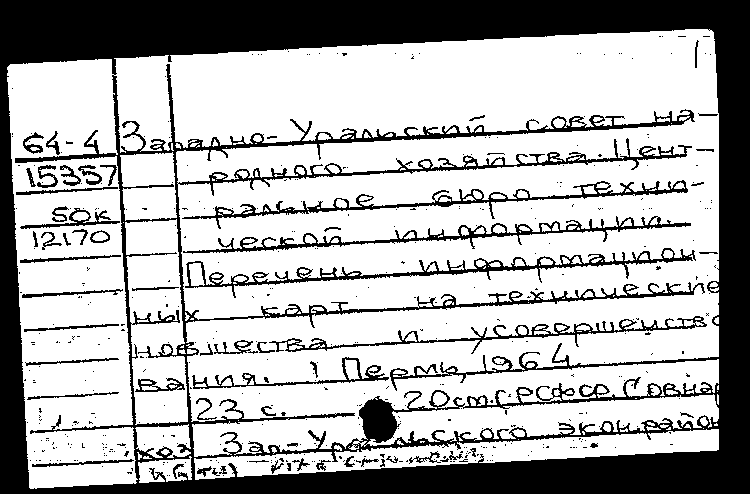 64-4 Западно-Уральский совет на-
15357 родного хозяйства. Цент-
50к ральное бюро техни-
12170 ческой информации.
Перечень информацион-
ных карт на технические
новшества и усовершенство
вания. Пермь, 1964
23 с. 20см. (РСФСР. Совнар
хоз Зап.-Уральского экон. район